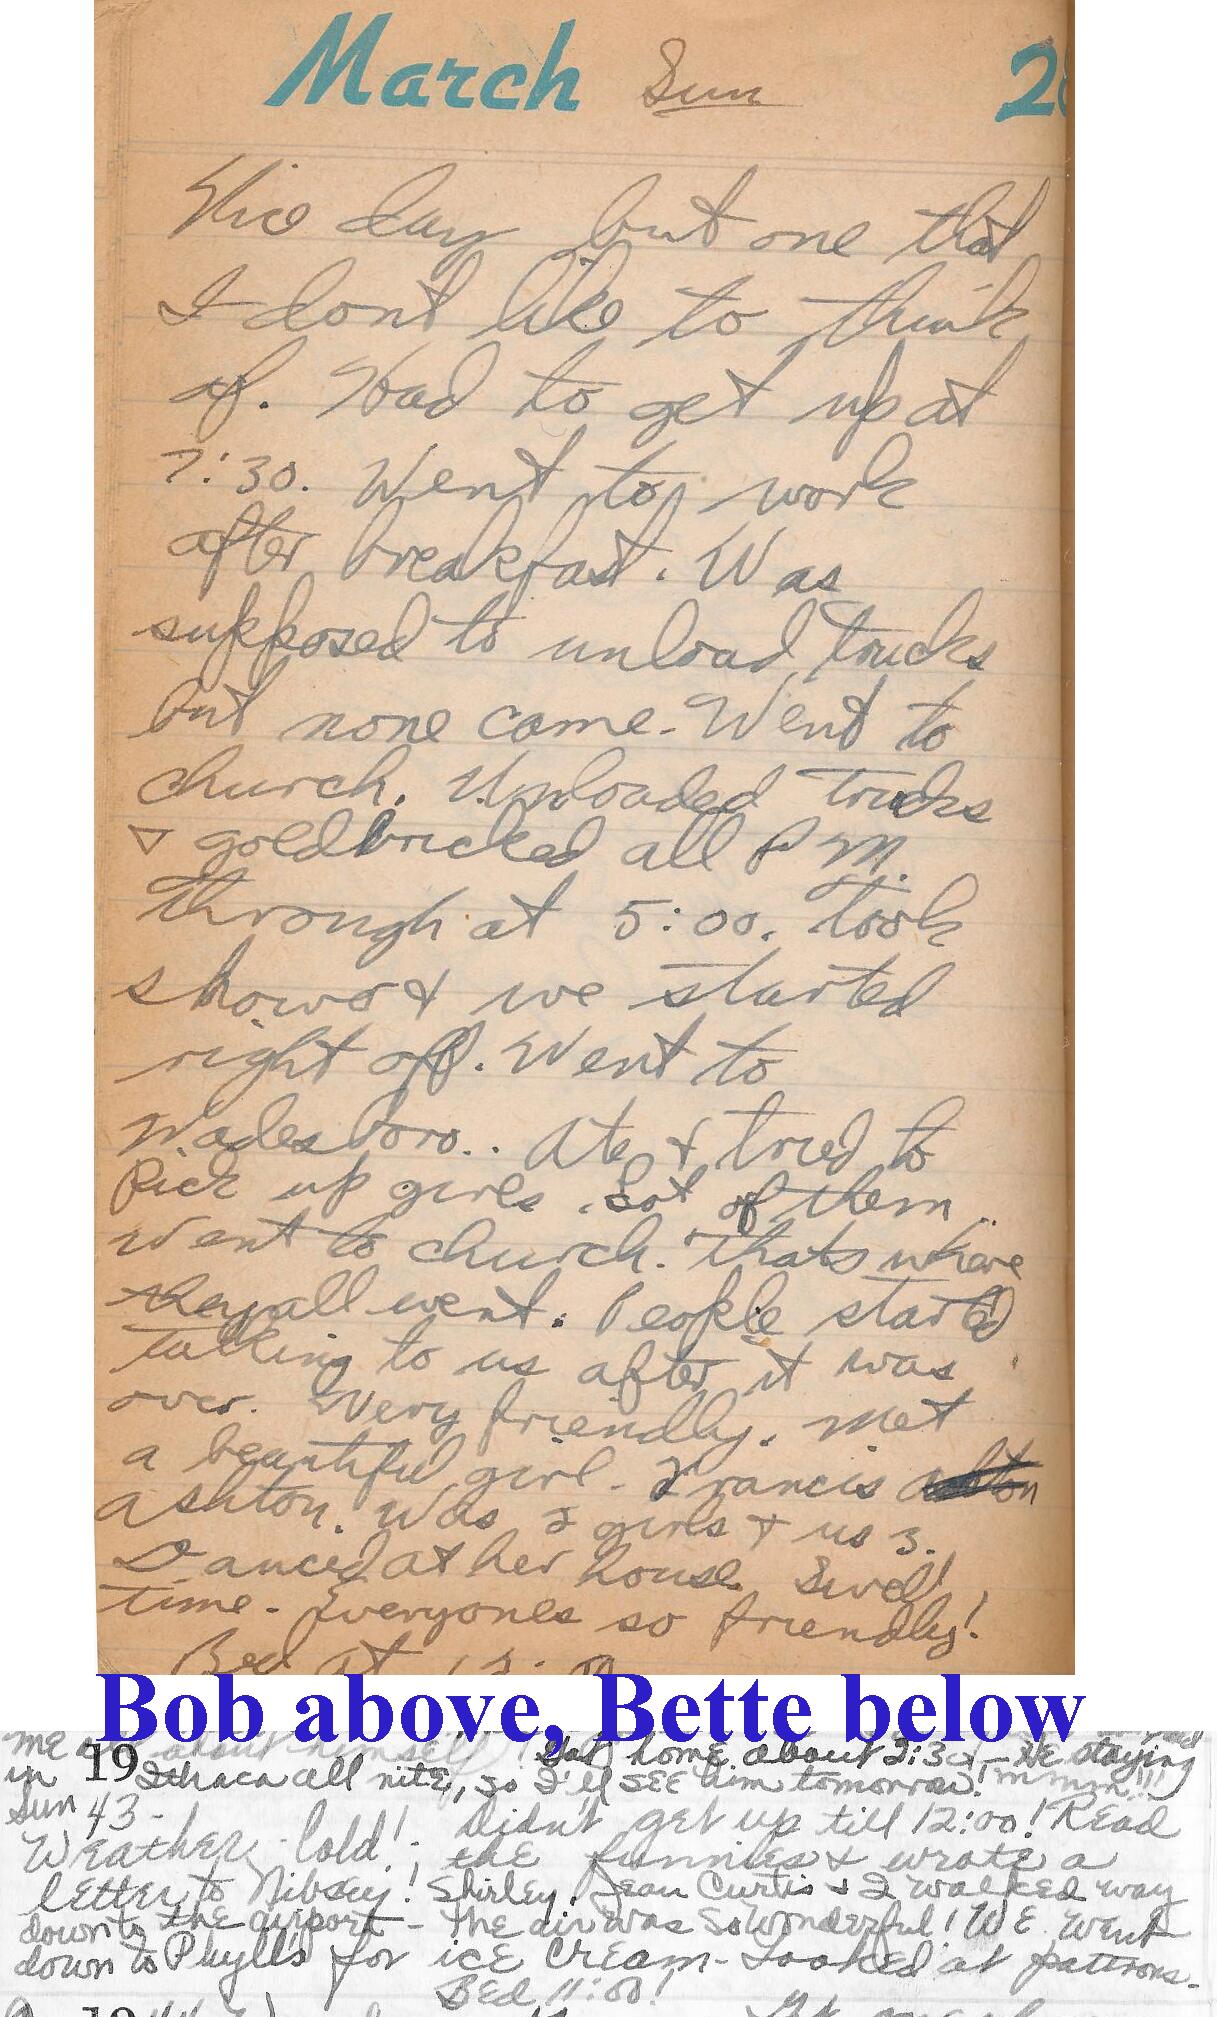 March Sun 28
Nice day but one that
I dont like to think
of. Had to get up at
7:30. Went to work
after breakfast. Was
supposed to unload trucks
but none came. Went to
church. Unloaded trucks
& goldbricked all P M.
through at 5:00. took
shower & we started
right off. Went to
Wadesboro.. Ate & tried to
Pick up girls. Lot of them
went to church. thats where
they all went. People started
talking to us after it was
over. Very friendly. Met
a beautiful girl. Francis
Ashton. Was 2 girls & us 3.
Danced at her house. Swell
time. Everyones so friendly!
Bed at 12:00
Bob above, Bette below
me about himself! Got home about 2:30 - He staying
in 19 Ithaca all nite, so I'll see him tomorrow! mmmm!!!
Sun 43 - Didn't get up till 12:00! Read
Weather - Cold! - the funnies & wrote a
letter to Nibsey! Shirley, Jean Curtis & I walked way
down to the airport - The air was so wonderful! We went
down to Phylls for ice cream - Looked at patterns -
Bed 11:00!
19